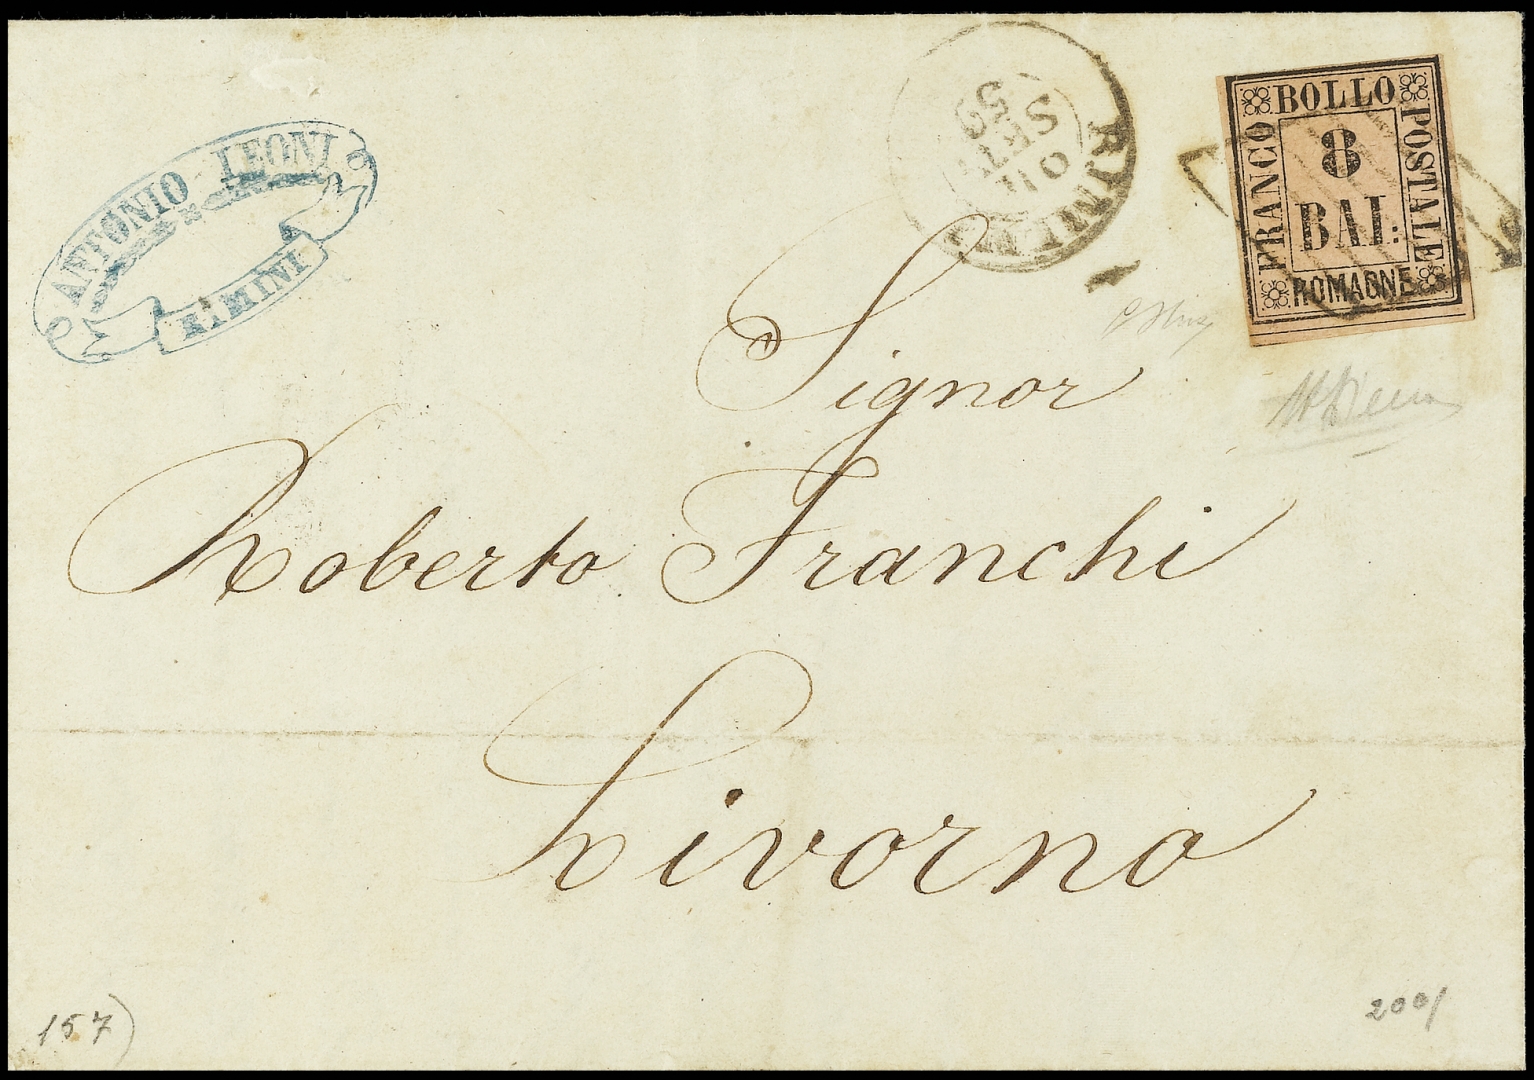 ANTONIO LEONI
RIMINI
RIMINI
SETT
59
FRANCO BOLLO POSTALE
8
BAI:
ROMAGNE
Signor
Roberto Franchi
Livorno
157)
200/